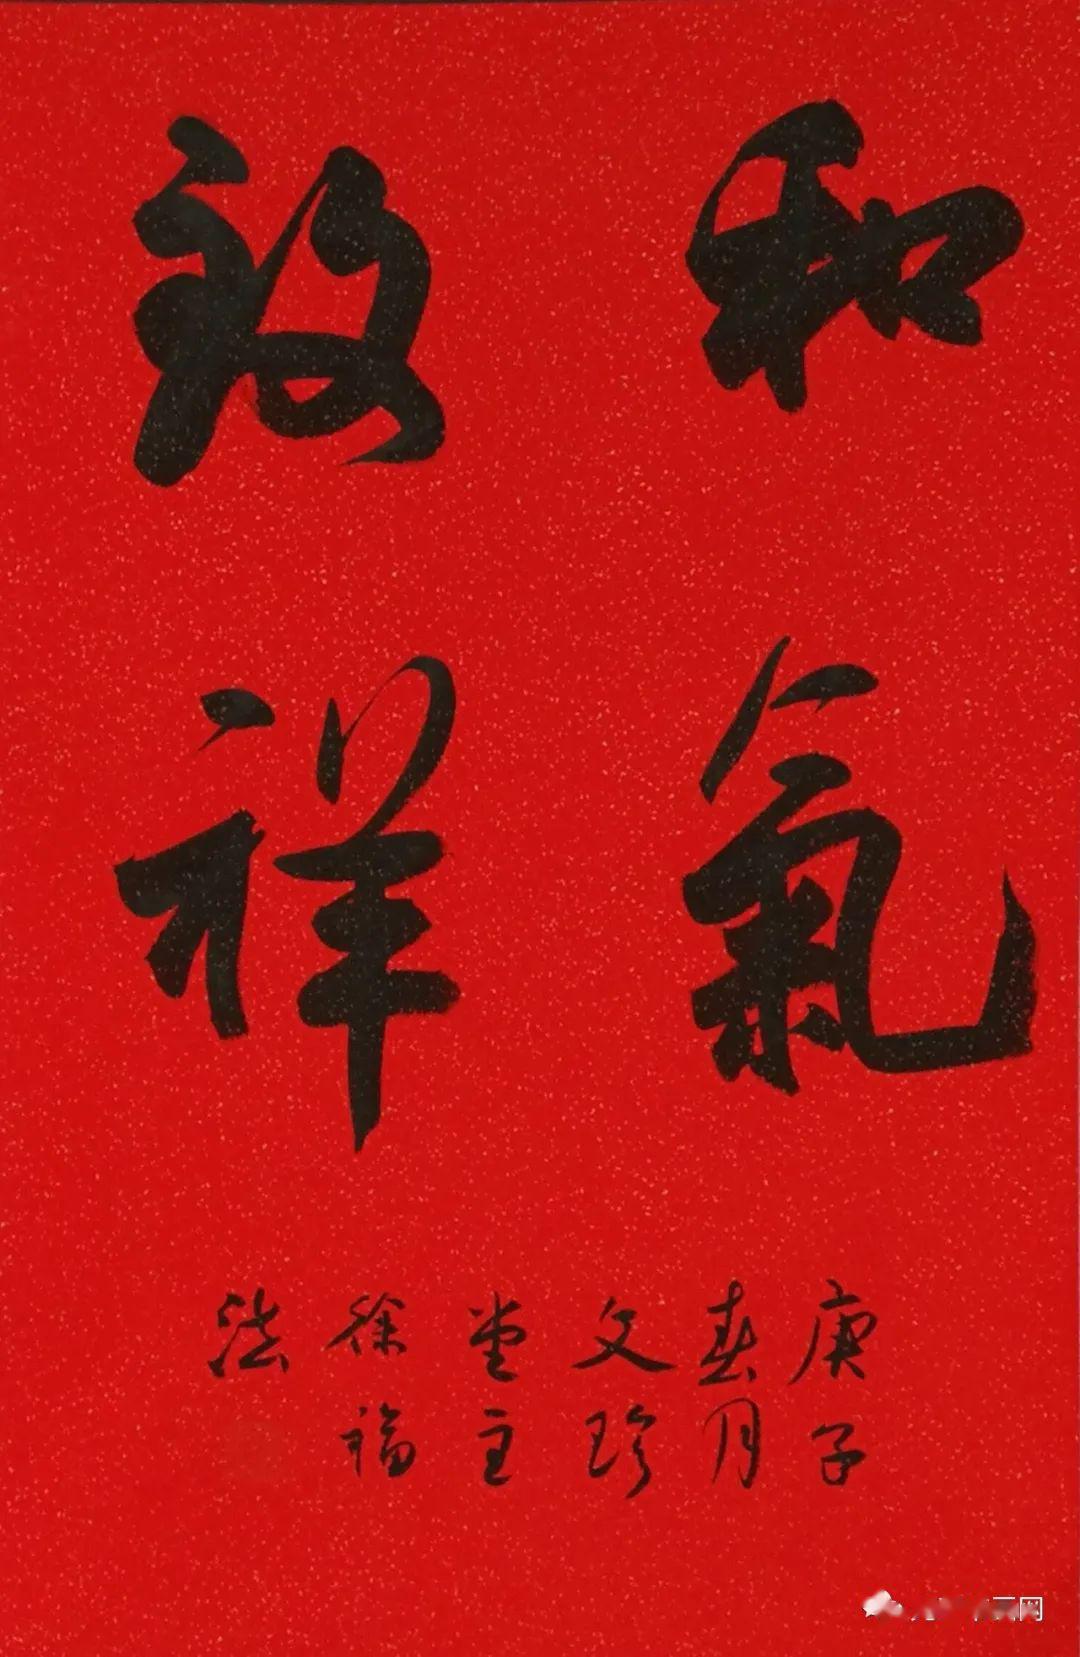 和氣
致祥
庚子
春月
文珍
堂主
徐福
法